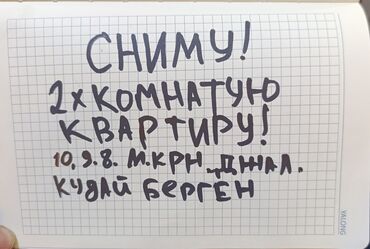 СНИМУ!
2х КОМНАТУЮ
КВАРТИРУ!
10.9.8. М.КРН. ДЖАЛ.
КУДАЙ БЕРГЕН
YALONG